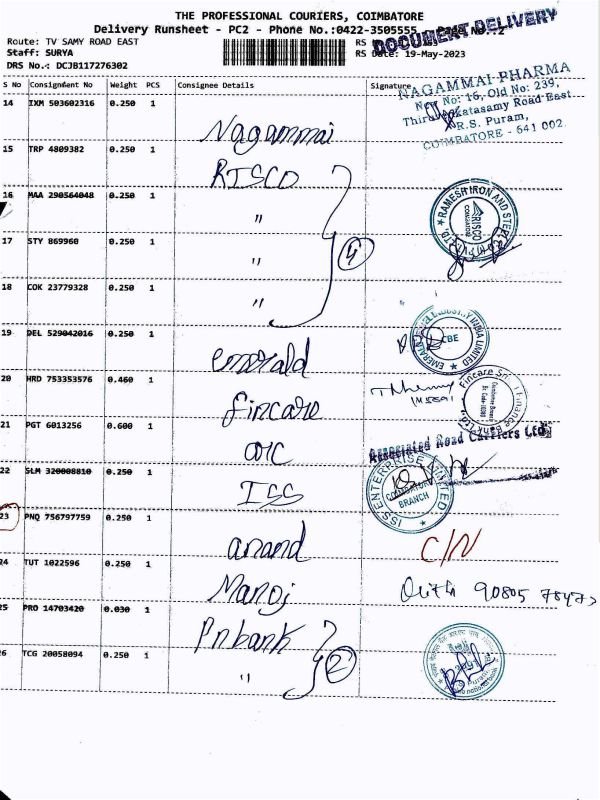 THE PROFESSIONAL COURIERS, COIMBATORE
Delivery Runsheet - PC2 - Phone No.:0422-3505555
DOCUMENT DELIVERY
Route: TV SAMY ROAD EAST
Staff: SURYA
RS Date: 19-May-2023
DRS No.: DCJB117276302
S No Consignment No Weight PCS Consignee Details Signature
14 IXM 503602316 0.250 1 Nagammai
NAGAMMAI PHARMA
New No: 16, Old No: 239,
Thiruvenkatasamy Road East
R.S. Puram,
COIMBATORE - 641 002
15 TRP 4809382 0.250 1 RISCO
16 MAA 290564048 0.250 1 "
RAMESH IRON AND STEEL
RISCO
17 STY 869960 0.250 1 "
4
18 COK 23779328 0.250 1 "
19 DEL 529042016 0.250 1 emerald
INDIA LIMITED
CBE
20 HRD 753353576 0.460 1 fincare
Fincare
21 PGT 6013256 0.600 1 arc
Associated Road Carriers Ltd.
22 SLM 320008810 0.250 1 ISS
ISS ENTERPRISE LIMITED
COIMBATORE
BRANCH
23 PNQ 756797759 0.250 1 anand
C/N
24 TUT 1022596 0.250 1 Manoj
90805 78473
25 PRO 14703420 0.030 1 Pnbank
26 TCG 20058094 0.250 1 "
2